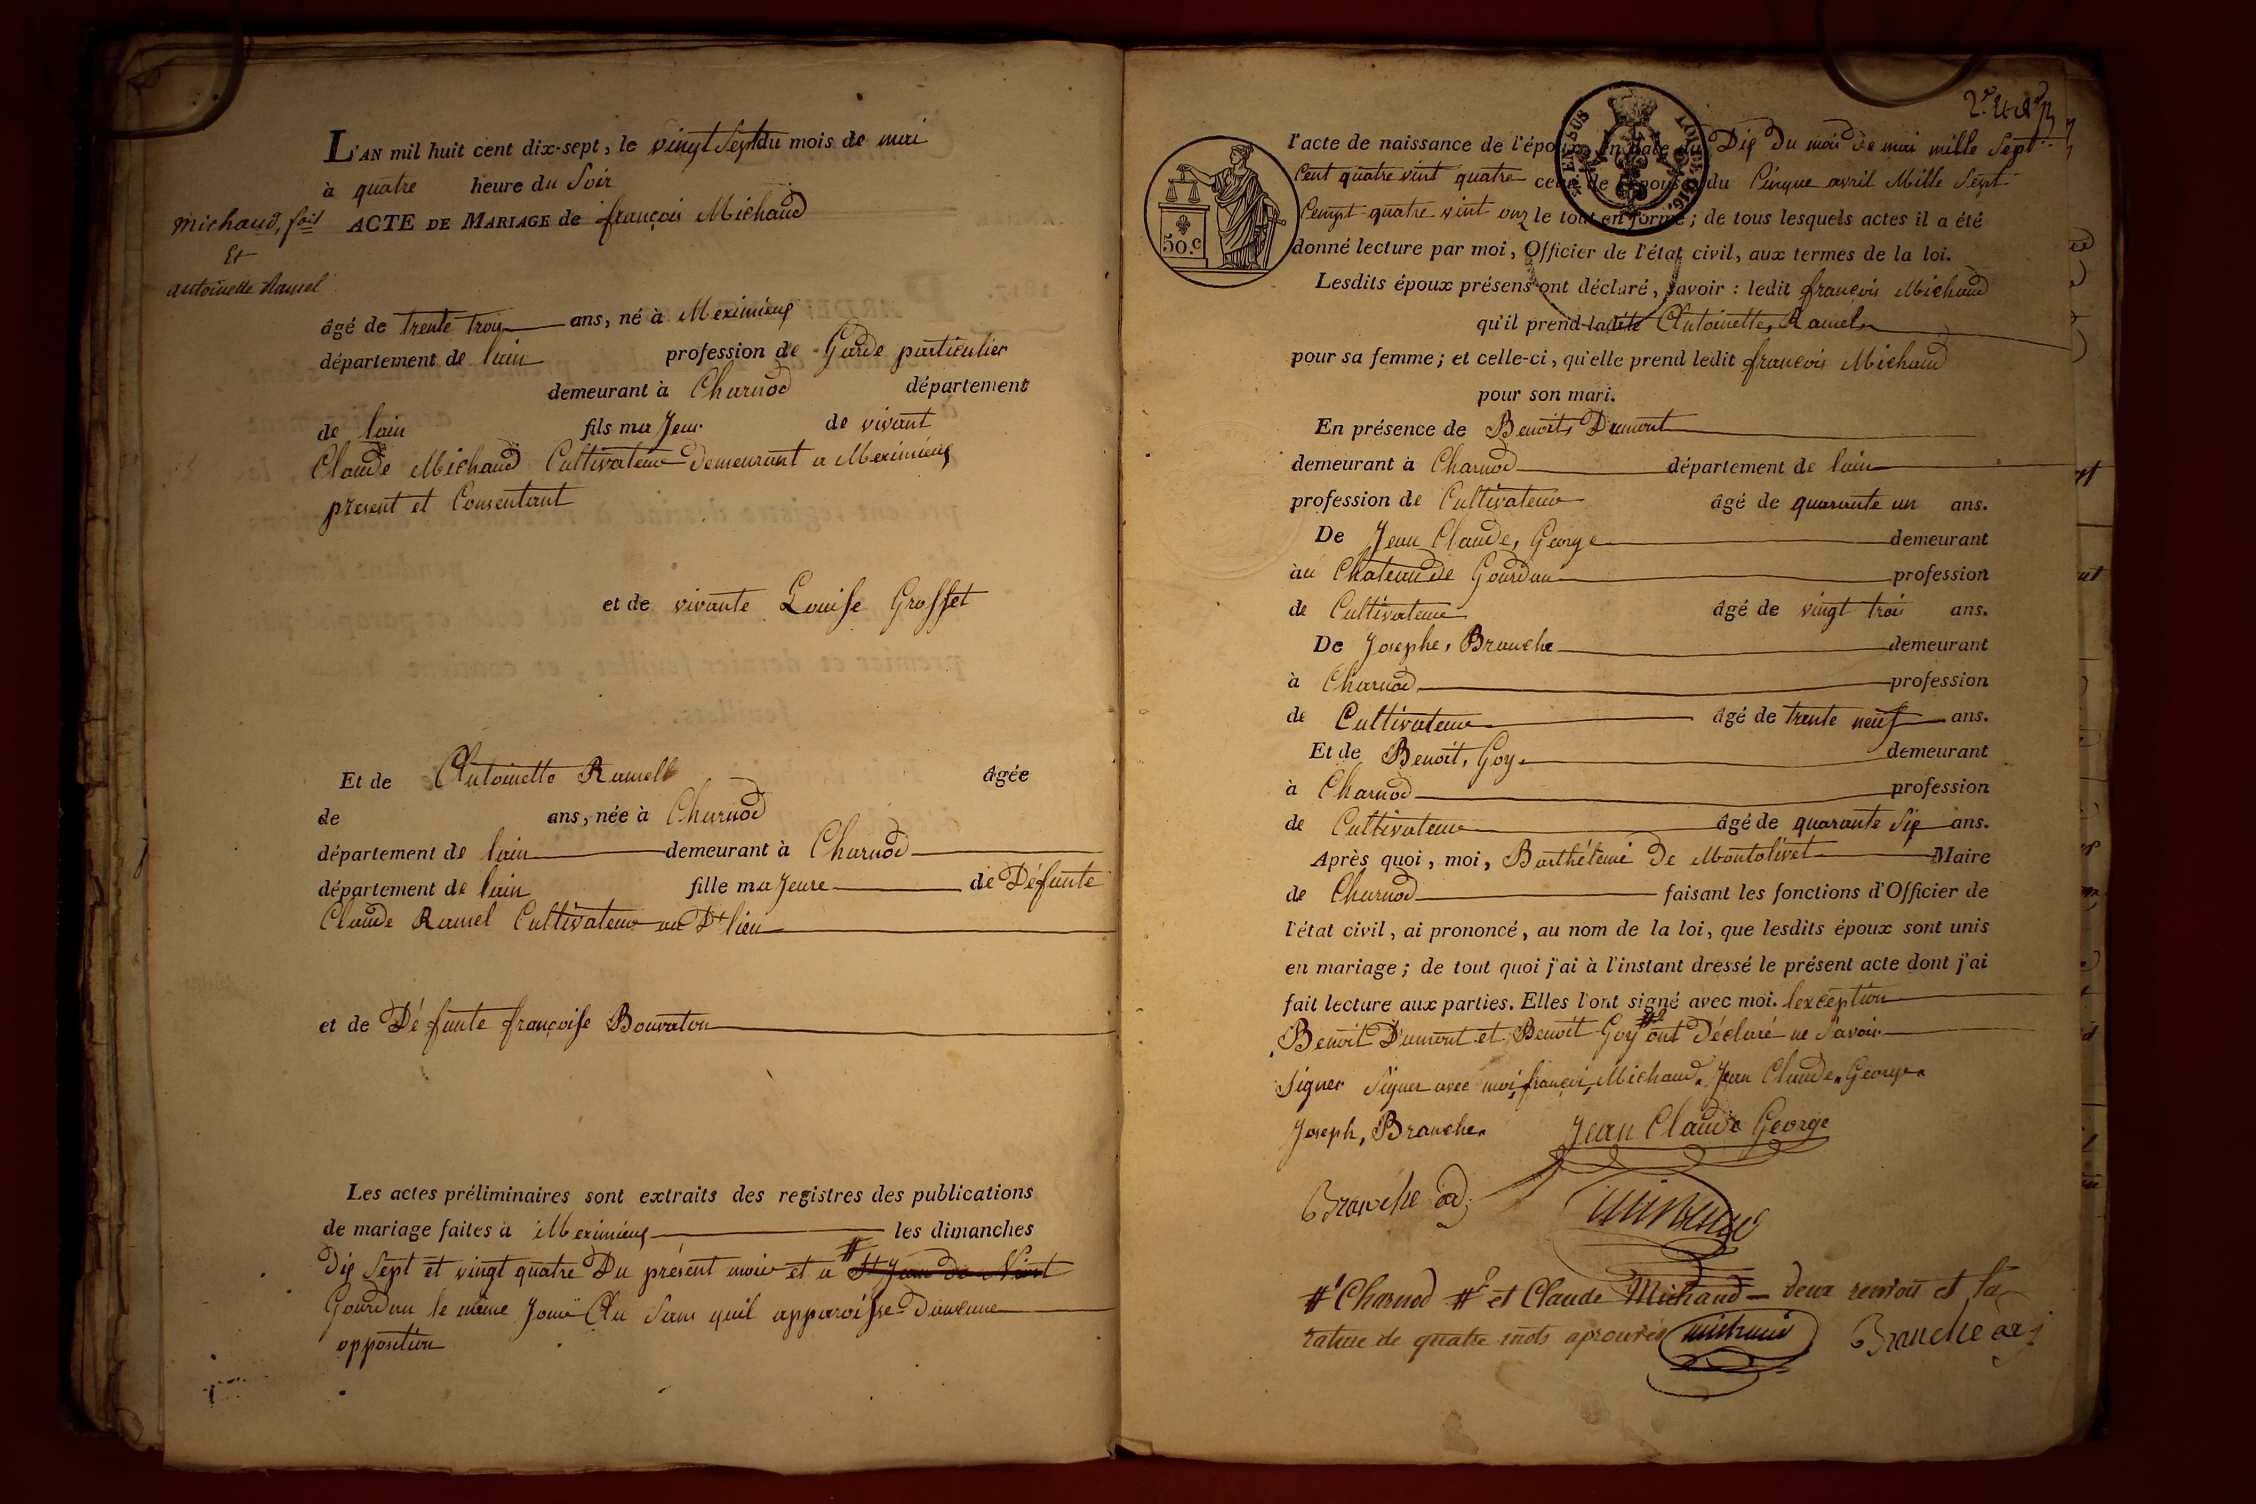 L'AN mil huit cent dix-sept, le vingt Sept du mois de mai
à quatre heure du Soir
Michaud, fois
Et
antoinette Ramel
ACTE DE MARIAGE de françois Michaud
âgé de trente trois ans, né à Meximieux
département de lain profession de Garde particulier
demeurant à Charnod département
de lain fils majeur de vivant
Claude Michaud Cultivateur demeurant a Meximieux
present et Consentant
et de vivante Louise Grosset
Et de Antoinette Ramel âgée
de ans, née à Charnod
département de lain demeurant à Charnod
département de lain fille majeure de Défunte
Claude Ramel Cultivateur au Dt lieu
et de Défunte françoise Bouvaton
Les actes préliminaires sont extraits des registres des publications
de mariage faites à Meximieux les dimanches
Dix Sept et vingt quatre Du présent mois et a # St Jean de Niost
Gourdan le même Jour Sans quil apparoisse d'aucune
opposition
50.c
LOUIS
l'acte de naissance de l'époux, en date Dix Du mois de mai mille Sept
Cent quatre vint quatre celui de l'épouse du Cinque avril Mille Sept
Cempt quatre vint onz le tout en forme ; de tous lesquels actes il a été
donné lecture par moi, Officier de l'état civil, aux termes de la loi.
Lesdits époux présens ont déclaré, savoir : ledit françois Michaud
qu'il prend ladite Antoinette Ramel
pour sa femme ; et celle-ci, qu'elle prend ledit françois Michaud
pour son mari.
En présence de Benoit Dumont
demeurant à Charnod département de lain
profession de Cultivateur âgé de quarante un ans.
De Jean Claude, George demeurant
au Chateau de Gourdan profession
de Cultivateur âgé de vingt trois ans.
De Josephe, Branche demeurant
à Charnod profession
de Cultivateur âgé de trente neuf ans.
Et de Benoit, Goy demeurant
à Charnod profession
de Cultivateur âgé de quarante Six ans.
Après quoi, moi, Barthélemi De Montolivet Maire
de Charnod faisant les fonctions d'Officier de
l'état civil, ai prononcé, au nom de la loi, que lesdits époux sont unis
en mariage ; de tout quoi j'ai à l'instant dressé le présent acte dont j'ai
fait lecture aux parties. Elles l'ont signé avec moi. lexception
Benoit Dumont et Benoit Goy # ont Déclaré ne Savoir
signer Signer avec moi, françois, Michaud. Jean Claude. George.
Joseph, Branche. Jean Claude George
Branche adj
# Charnod # et Claude Michaud deux renvois et la
rature de quatre mots aprouvés michaud Branche adj